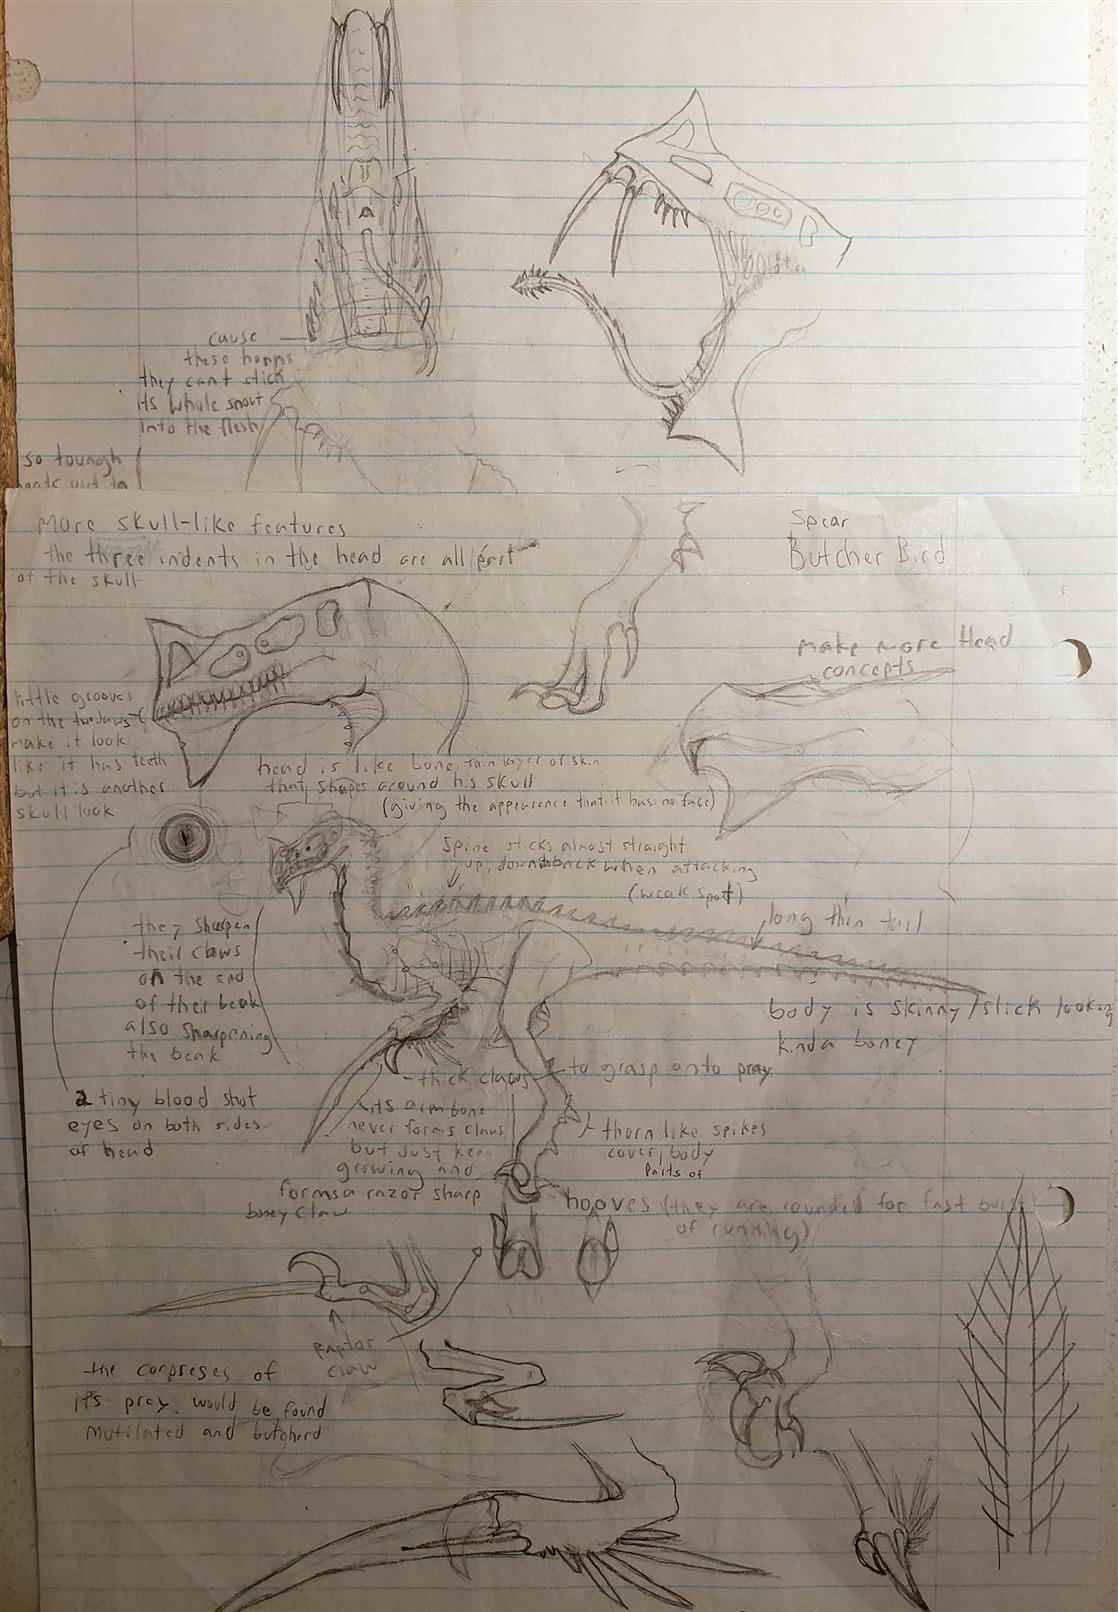 cause
these horns
they cant stick
its whole snout
into the flesh
so toungh
More skull-like features
the three indents in the head are all part
of the skull
Spear
Butcher Bird
make more Head
concepts
little grooves
on the
make it look
like it has teeth
but it is another
skull look
head is like bone, thin layer of skin
that shapes around his skull
(giving the appearence that it has no face)
Spine sticks almost straight
up, down back when attacking
(weak spot)
long thin tail
they sharpen
their claws
on the end
of their beak
also sharpening
the beak
body is skinny/slick looking
kinda boney
thick claws
to grasp onto pray
2 tiny blood shot
eyes on both sides
of head
its arm bone
never forms claws
but just keep
growing and
forms a razor sharp
boney claw
thorn like spikes
cover body
Parts of
hooves (they are rounded for fast burst
of running)
Raptor
claw
the corpreses of
it's pray would be found
mutilated and butcherd